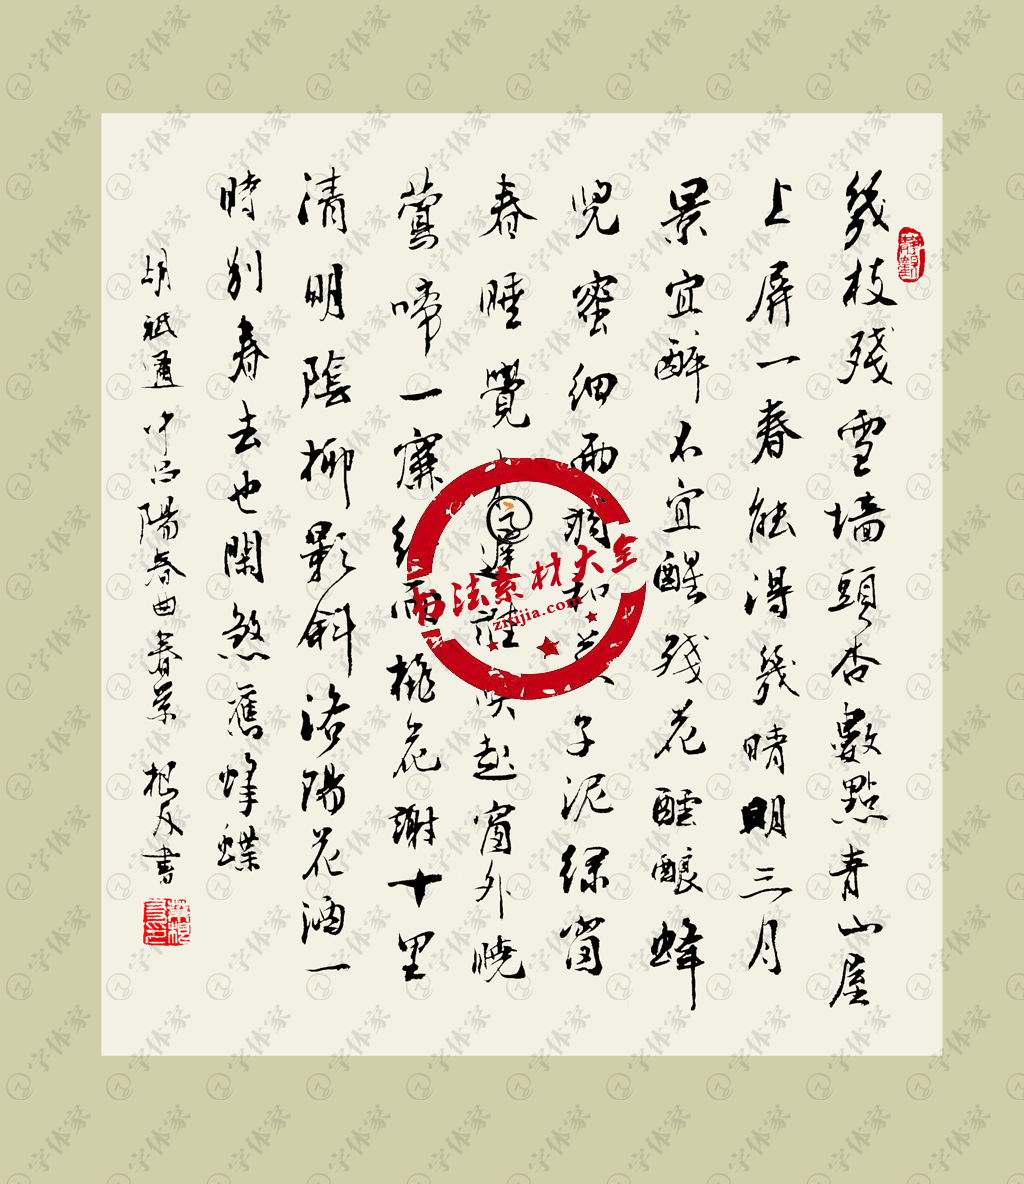 靜觀
幾枝殘雪墻頭杏數點青山屋
上屏一春能得幾晴明三月
景宜醉不宜醒殘花醞釀蜂
兒蜜細雨調和子泥綠窗
春睡覺遲誰喚起窗外曉
鶯啼一簾紅雨桃花謝十里
清明陰柳影斜洛陽花酒一
時別春去也閑煞舊蜂蝶
胡祗遹中呂陽春曲春景 根友書
书法素材大全
字体家